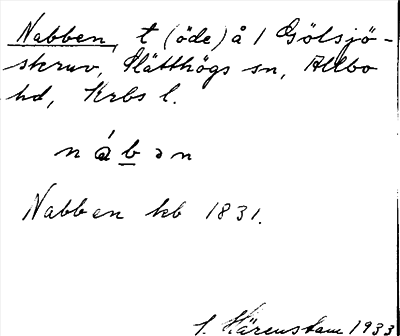 Nabben, t (öde) å 1 Gölsjö-
skruv, Slätthögs sn, Allbo
hd, Krbs l.
nábən
Nabben kb 1831.
C. Härenstam 1933